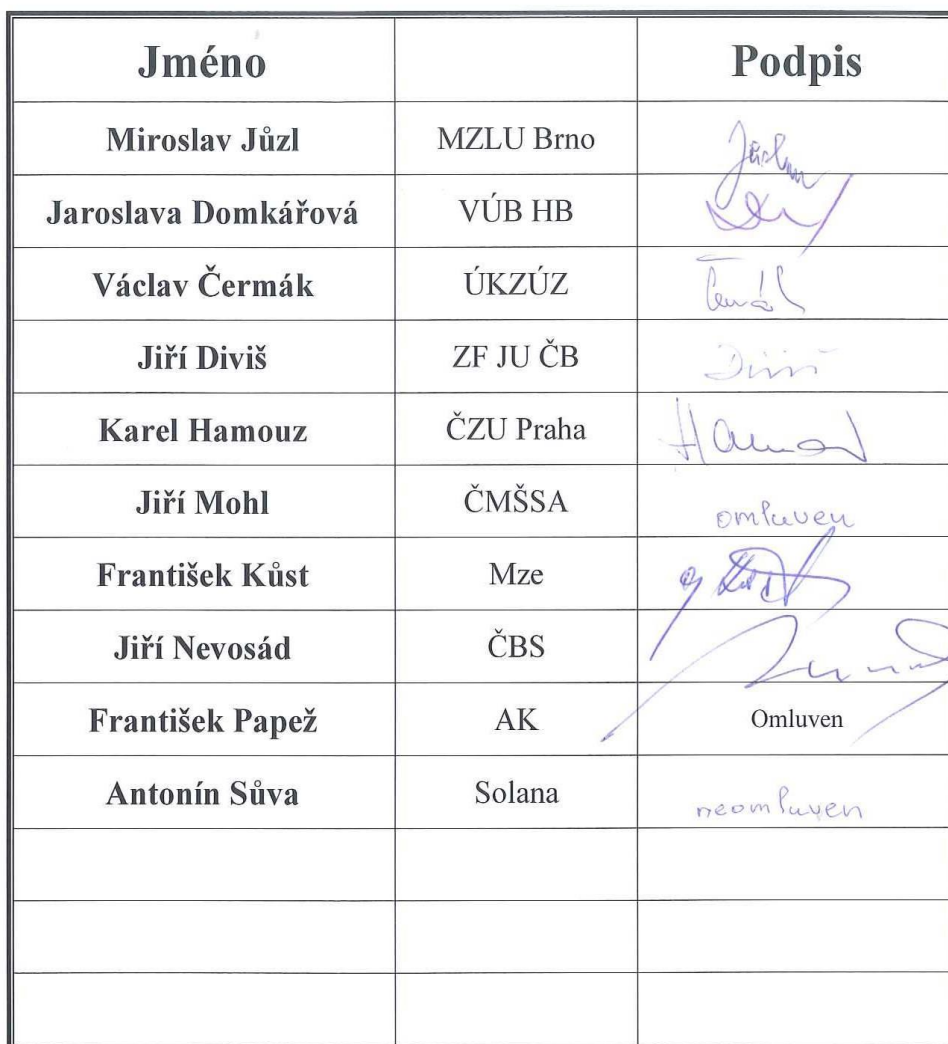 Jméno Podpis
Miroslav Jůzl MZLU Brno
Jaroslava Domkářová VÚB HB
Václav Čermák ÚKZÚZ Čermák
Jiří Diviš ZF JU ČB Diviš
Karel Hamouz ČZU Praha
Jiří Mohl ČMŠSA omluven
František Kůst Mze
Jiří Nevosád ČBS
František Papež AK Omluven
Antonín Sůva Solana neomluven